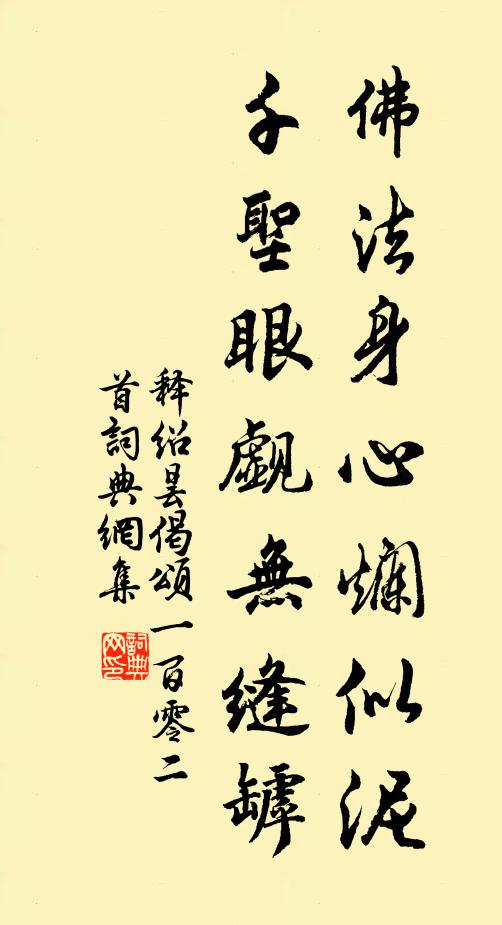 佛法身心爛似泥
千聖眼覷無縫罅
释绍昙偈頌一百零二
首詞典網集
詞典网印